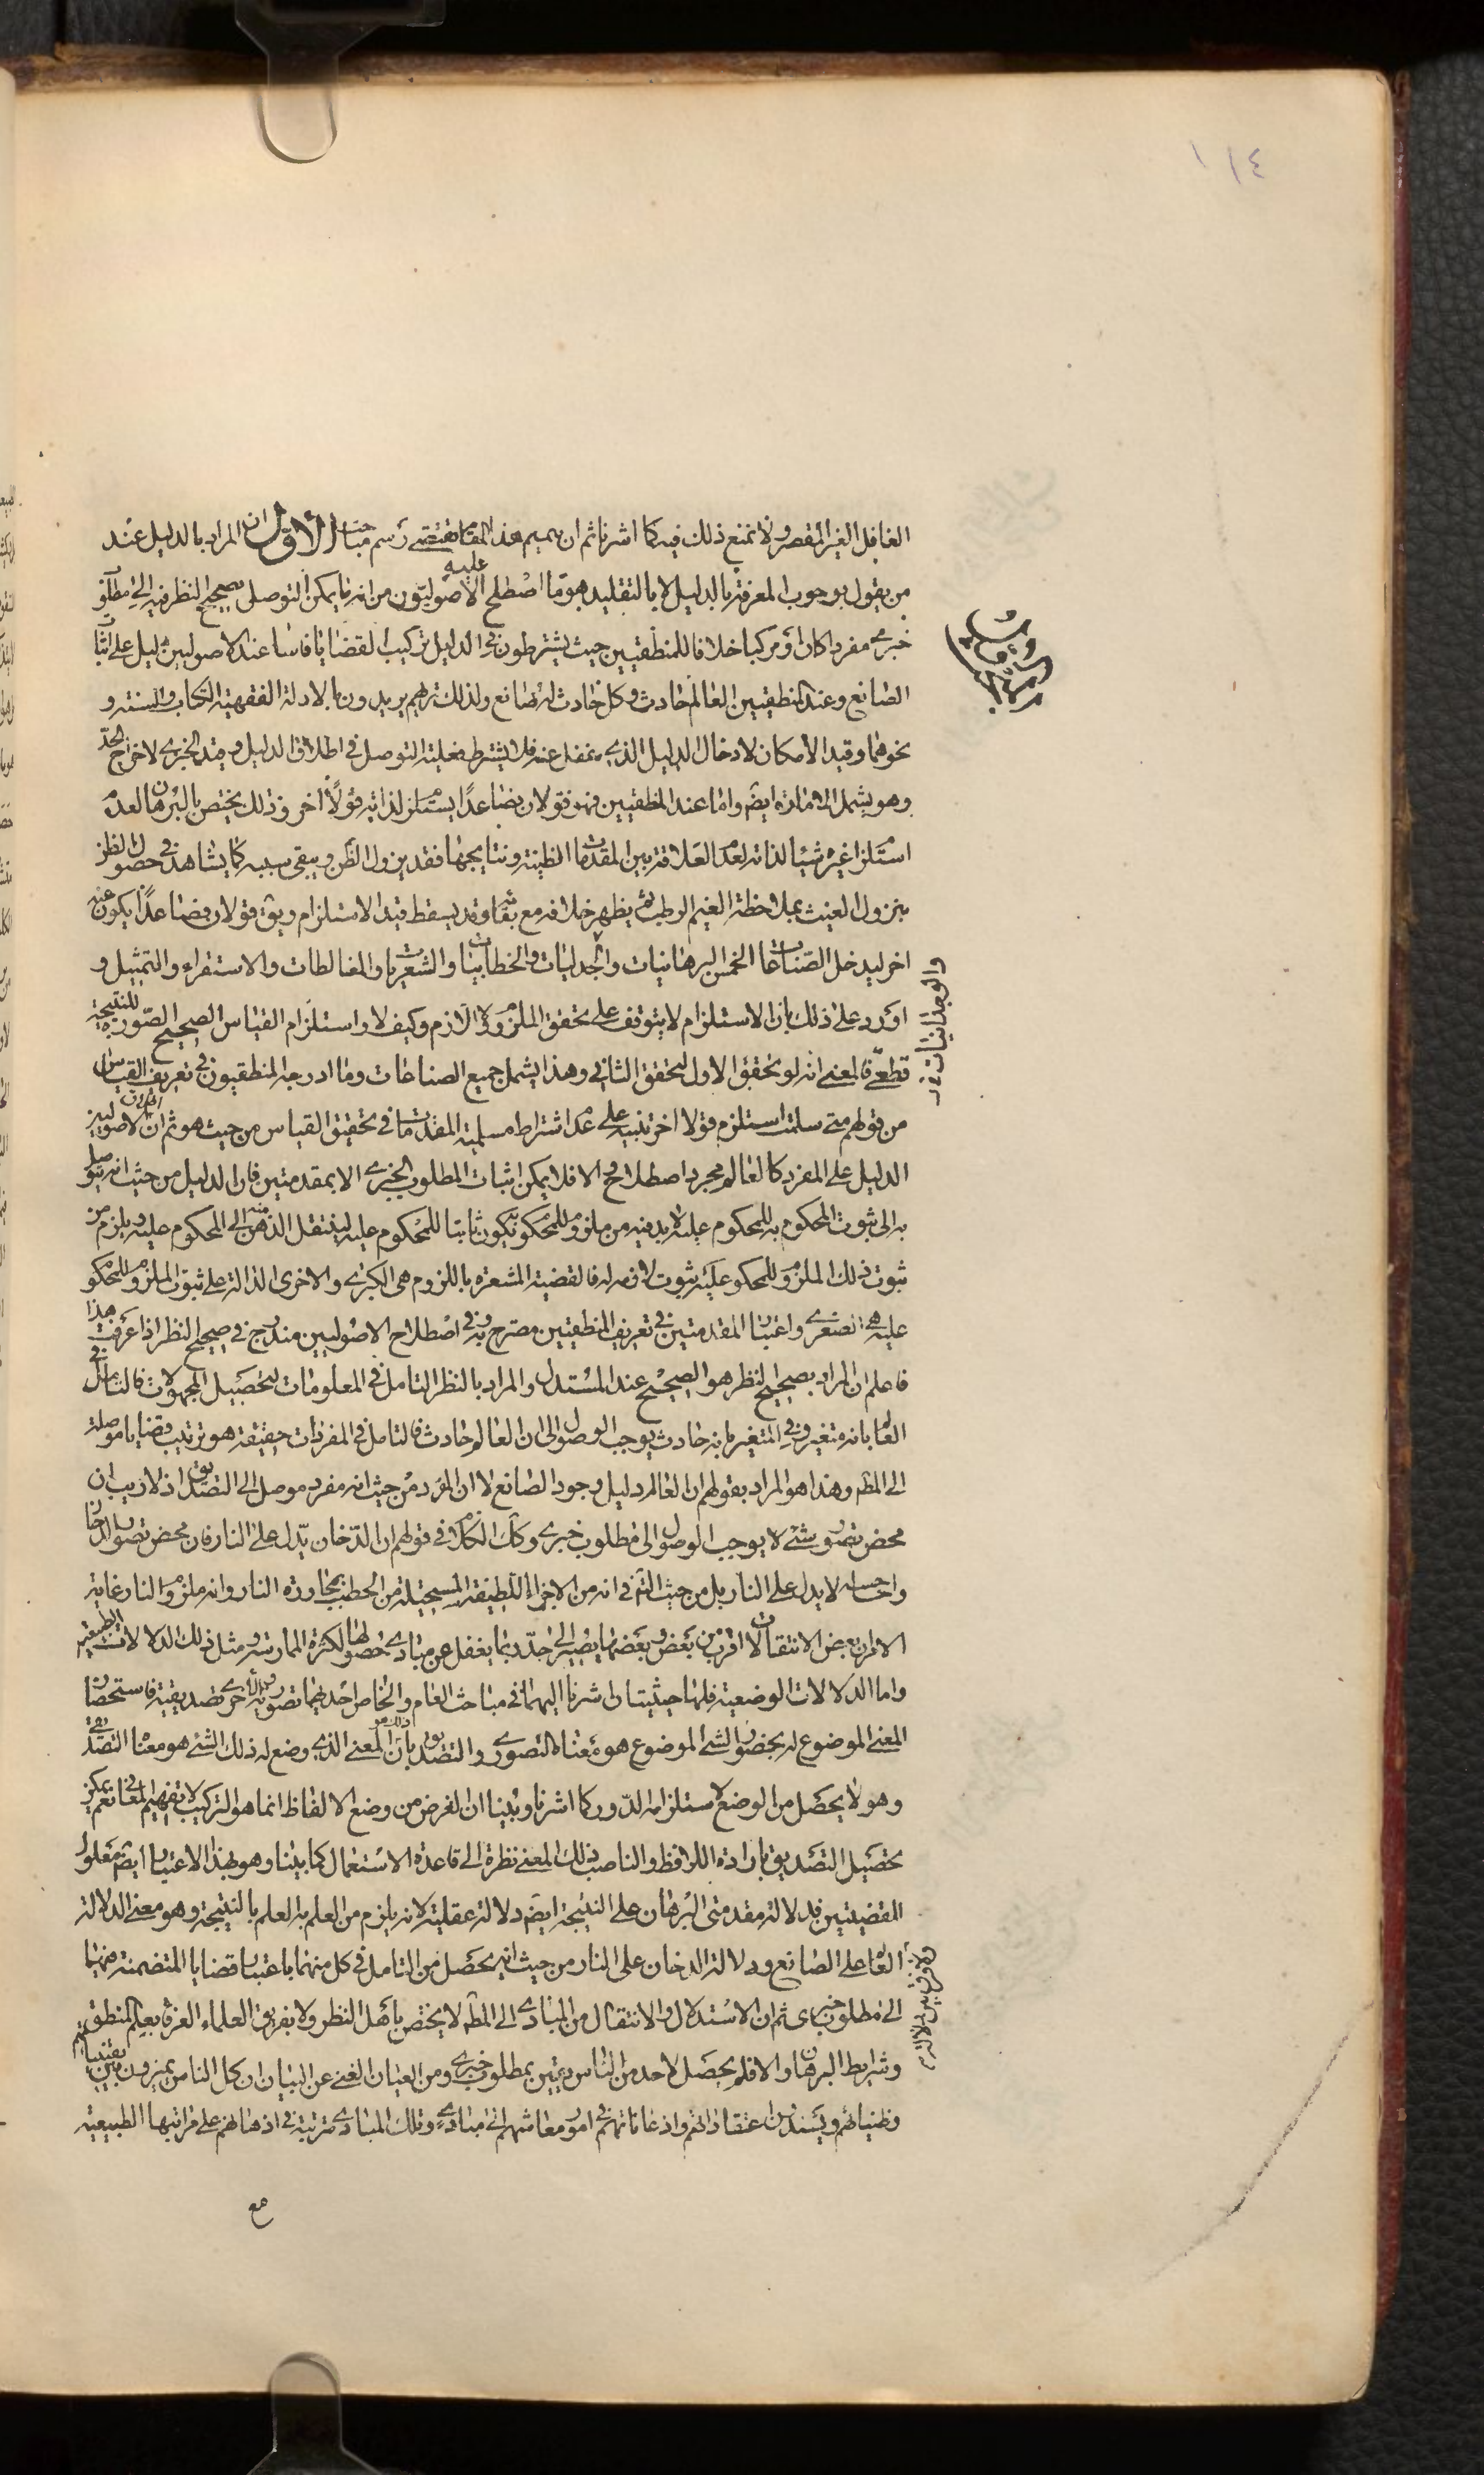 ١١٤
الغافل الغير المقصر ولا نمنع ذلك فيه كما اشرنا ثم ان تميم هذا المقام يقتضي رسم مباحث الاول ان المراد بالدليل عند
من يقول بوجوب المعرفة بالدليل لا بالتقليد هو ما اصطلح عليه الاصوليون من انه ما يمكن التوصل بصحيح النظر فيه الى مطلوب
خبري مفردا كان او مركبا خلافا للمنطقيين حيث يشترطون في الدليل تركيب القضايا فالعالم عند الاصوليين دليل على اثبات
الصانع وعند المنطقيين العالم حادث وكل حادث له صانع ولذلك تريهم يريدون بالادلة الفقهية الكتاب والسنة و
نحوهما وقيد الامكان لادخال الدليل الذي يغفل عنه فلا يشترط فعلية التوصل في اطلاق الدليل وقيد الخبري لاخراج الحد
وهو يشمل الامارة ايضً واما عند المنطقيين فهو قولان فصاعدا يستلزم لذاته قولا اخر وذلك يختص بالبرهان لعدم
استلزام غيره شيئا لذاته لعدم العلاقة بين المقدمات الظنية ونتايجها فقد يزول الظن ويبقى سببه كما يشاهد في حصول الظن
بنزول الغيث بملاحظة الغيم الرطب ثم يظهر خلافه مع بقائه وقد يسقط قيد الاستلزام ويق قولان فصاعدا يكون عنه
اخر ليدخل الصناعات الخمس البرهانيات والجدليات والخطابيات والشعريات والمغالطات والاستقراء والتمثيل و
اورد على ذلك بان الاستلزام لا يتوقف على تحقق الملزوم ولا اللازم وكيف لا واستلزام القياس الصحيح الصورة للنتيجة
قطعي فالمعنى انه لو تحقق الاول تحقق الثاني وهذا يشمل جميع الصناعات وما ادرجه المنطقيون في تعريف القياس
من قولهم متى سلمت استلزم قولا اخر تنبيه على عدم اشتراط مسلمية المقدمات في تحقيق القياس من حيث هو ثم ان اطلاق الاصوليين
الدليل على المفرد كالعالم مجرد اصطلاح والا فلا يمكن اثبات المطلوب الخبري الا بمقدمتين فان الدليل من حيث انه يتوصل
به الى ثبوت المحكوم به للمحكوم عليه لا بد فيه من ملزوم للمحكوم به يكون ثابتا للمحكوم عليه لينتقل الذهن منه الى المحكوم عليه ويلزم من
ثبوت ذلك الملزوم للمحكوم عليه ثبوت لازمه له فالقضية المشعرة باللزوم هي الكبرى والاخرى الدالة على ثبوت الملزوم للمحكوم
عليه هي الصغرى واعتبار المقدمتين في تعريف المنطقيين مصرح به وفي اصطلاح الاصوليين مندرج في صحيح النظر اذا عرفت هذا
فاعلم ان المراد بصحيح النظر هو الصحيح عند المستدل والمراد بالنظر التامل في المعلومات لتحصيل المجهولات فالتامل في
العالم بانه متغير وفي المتغير بانه حادث يوجب الوصول الى ان العالم حادث فالتامل في المفردات حقيقة هو ترتيب قضايا موصلة
الى المطَ وهذا هو المراد بقولهم ان العالم دليل وجود الصانع لا ان المفرد من حيث انه مفرد موصل الى التصديق اذ لا ريب ان
محض تصور شئ لا يوجب الوصول الى مطلوب خبري وكك الكلام في قولهم ان الدخان يدل على النار فان محض تصور الدخان
واحساسه لا يدل على النار بل من حيث التامل في انه من الاجزاء اللطيفة المستحيلة من الحطب بمجاورة النار وانه ملزوم النار غاية
الامر ان بعض الانتقالات اقرب من بعض وبعضها يصير الى حد ربما يغفل عن مبادي حصولها لكثرة الممارسة ومثل ذلك الدلالات الطبيعية
واما الدلالات الوضعية فلها حيثيتان اشرنا اليهما في مباحث العام والخاص احديهما تصورية والاخرى تصديقية فاستحضار
المعنى الموضوع له بحضور الشئ الموضوع هو معناه التصوري والتصديق بان المعنى الذي وضع له ذلك الشئ هو معناه التصديقي
وهو لا يحصل من الوضع لاستلزامه الدور كما اشرنا وبينا ان الغرض من وضع الالفاظ انما هو التركيب لا تفهيم المعاني نعم يمكن
تحصيل التصديق بارادة اللافظ والناصب ذلك المعنى نظرة الى قاعدة الاستعمال كما بينا وهو بهذا الاعتبار ايضً معلول
القضيتين فدلالة مقدمتي البرهان على النتيجة ايضً دلالة عقلية لانه يلزم من العلم به العلم بالنتيجة وهو معنى الدلالة
العالم على الصانع ودلالة الدخان على النار من حيث انه يحصل من التامل في كل منهما باعتبار قضايا المتضمنة فيهما
الى مطلوب خبري ثم ان الاستدلال والانتقال من المبادي الى المطَ لا يختص باهل النظر ولا بفريق العلماء العرفاء بعلم المنطق
وشرايط البرهان والا فلم يحصل لاحد من الناس يقين بمطلوب خبري ومن العيان الغنى عن البيان ان كل الناس يميزون بين يقينياتهم
وظنياتهم ويسندون اعتقاداتهم واذعاناتهم في امور معاشهم الى مبادي وتلك المبادي مترتبة في اذهانهم على مراتبها الطبيعية
والوجدانيات
مع